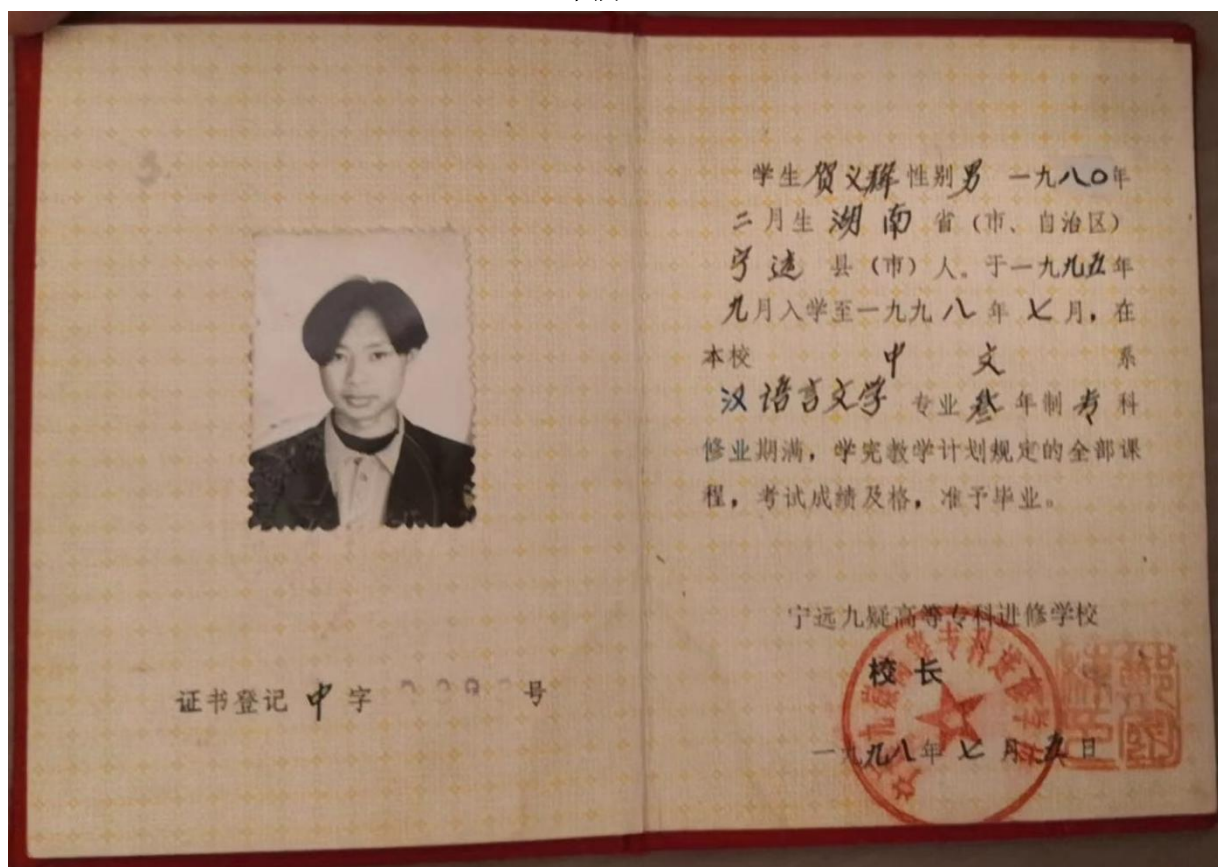 证书登记 中 字 号
学生 贺义辉 性别 男 一九八〇年
二 月生 湖南 省（市、自治区）
宁远 县（市）人。于一九九五年
九月入学至一九九八年 七月，在
本校 中文 系
汉语言文学 专业 叁 年制 专 科
修业期满，学完教学计划规定的全部课
程，考试成绩及格，准予毕业。
宁远九疑高等专科进修学校
校 长
一九九八年 七 月 五 日